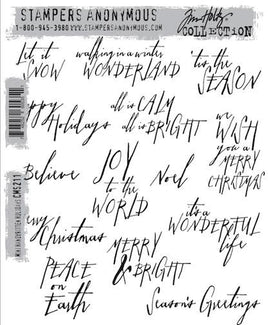 STAMPERS ANONYMOUS
1-800-945-3980 WWW.STAMPERSANONYMOUS.COM
Tim Holtz
COLLECTION
Let it
SNOW
walking in a winter
WONDERLAND
'tis the
SEASON
Happy
Holidays
all is CALM
all is BRIGHT
we WISH
you a
MERRY
CHRISTMAS
Believe
JOY
to the
WORLD
Noel
it's a
WONDERFUL
life
Merry
Christmas
MERRY
& BRIGHT
PEACE
on
Earth
Season's Greetings
CMS211